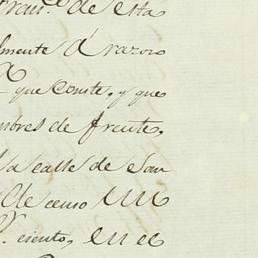 de esta
lmente á razon
que conste, y que
mbres de frente,
la calle de San
de censo un
ciento, en el